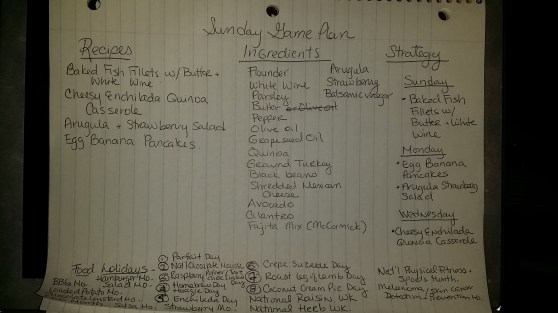 Sunday Game Plan
Recipes
Baked Fish Fillets w/ Butter +
White Wine
Cheesy Enchilada Quinoa
Casserole
Arugula + Strawberry Salad
Egg Banana Pancakes
Ingredients
Flounder
White Wine
Parsley
Butter or Olive oil
Pepper
Olive oil
Grapeseed Oil
Quinoa
Ground Turkey
Black beans
Shredded Mexican
Cheese
Avocado
Cilantro
Fajita Mix (McCormick)
Arugula
Strawberry
Balsamic vinegar
Strategy
Sunday
• Baked Fish
Fillets w/
Butter + White
Wine
Monday
• Egg Banana
Pancakes
• Arugula Strawberry
Salad
Wednesday
• Cheesy Enchilada
Quinoa Casserole
Food Holidays
BBQ Mo.
Hamburger Mo.
Salad Mo.
Loaded Potato Mo.
Salsa Mo.
Strawberry Mo.
Parfait Day
Nat'l Chocolate
Raspberry
Homebrew Day
Hoagie Day
Enchilada Day
Crepe Suzette Day
Roast Leg of Lamb Day
Coconut Cream Pie Day
National Raisin Wk.
National Herb Wk.
Nat'l Physical Fitness +
Sports Month
Melanoma / Skin Cancer
Detection + Prevention Mo.